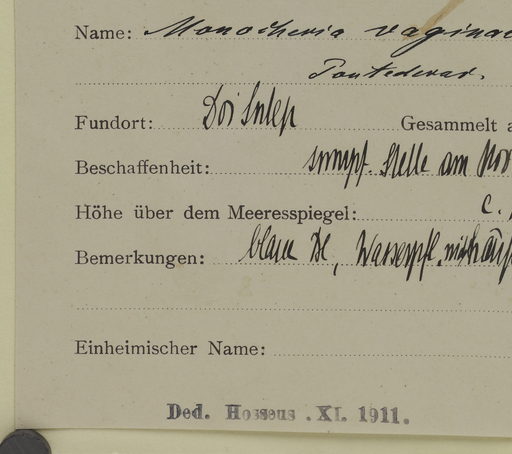 Name: Monocheria vagina
Pontederac.
Fundort: Doi Sutep Gesammelt a
Beschaffenheit: sumpf. Stelle am Nor
Höhe über dem Meeresspiegel: c.
Bemerkungen: blaue Bl, Wasserpfl.
Einheimischer Name:
Ded. Hosseus .XI. 1911.